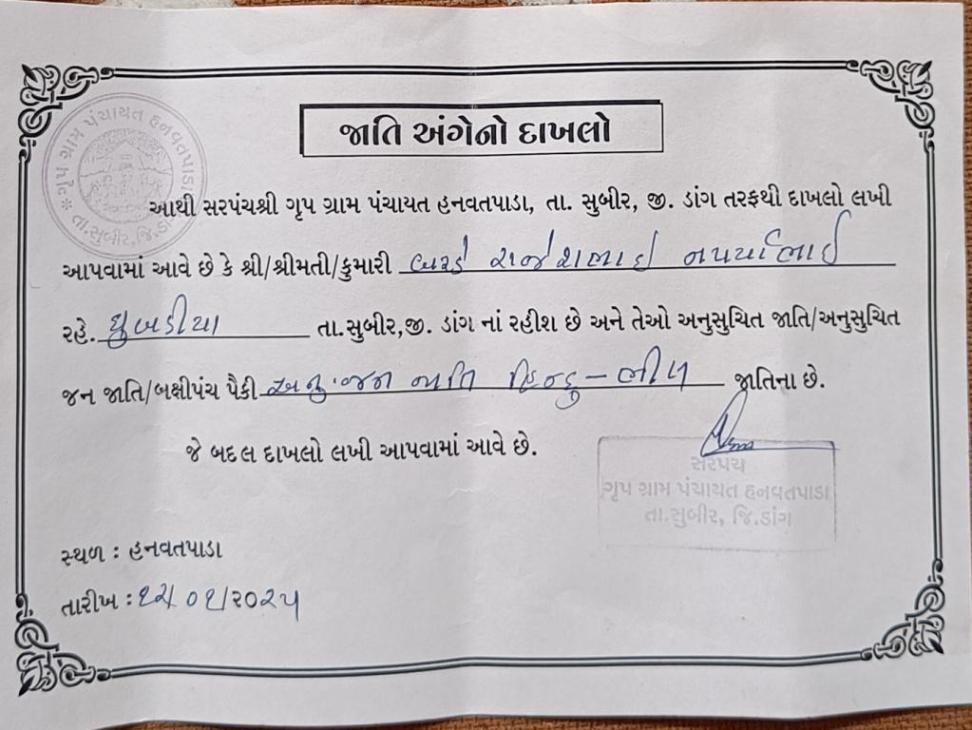 જાતિ અંગેનો દાખલો
ગૃપ ગ્રામ પંચાયત હનવતપાડા
તા.સુબીર, જિ.ડાંગ
આથી સરપંચશ્રી ગૃપ ગ્રામ પંચાયત હનવતપાડા, તા. સુબીર, જી. ડાંગ તરફથી દાખલો લખી
આપવામાં આવે છે કે શ્રી/શ્રીમતી/કુમારી બરડે રાજેશભાઇ
રહે. ધુબડીયા તા.સુબીર,જી. ડાંગ નાં રહીશ છે અને તેઓ અનુસુચિત જાતિ/અનુસુચિત
જન જાતિ/બક્ષીપંચ પૈકી અનુ.જન જાતિ હિન્દુ-ભીલ જાતિના છે.
જે બદલ દાખલો લખી આપવામાં આવે છે.
સરપંચ
ગૃપ ગ્રામ પંચાયત હનવતપાડા
તા.સુબીર, જિ.ડાંગ
સ્થળ : હનવતપાડા
તારીખ : /૦૧/૨૦૨૫